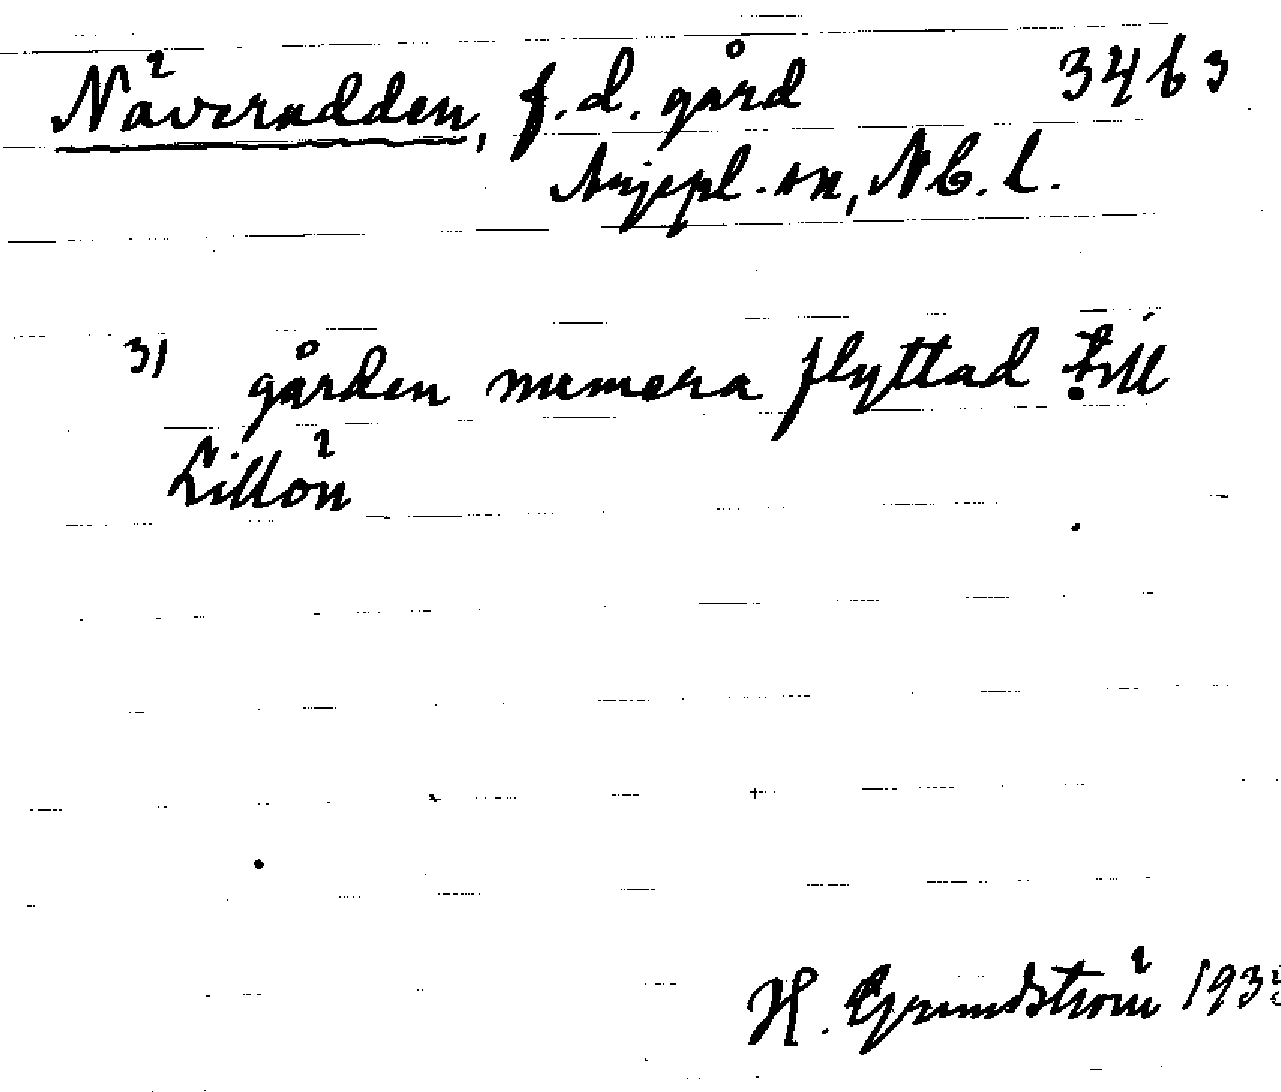 Näverudden, f.d. gård 3463
Arjepl. sn, Nb. l.
3) gården numera flyttad till
Lillön
H. Grundström